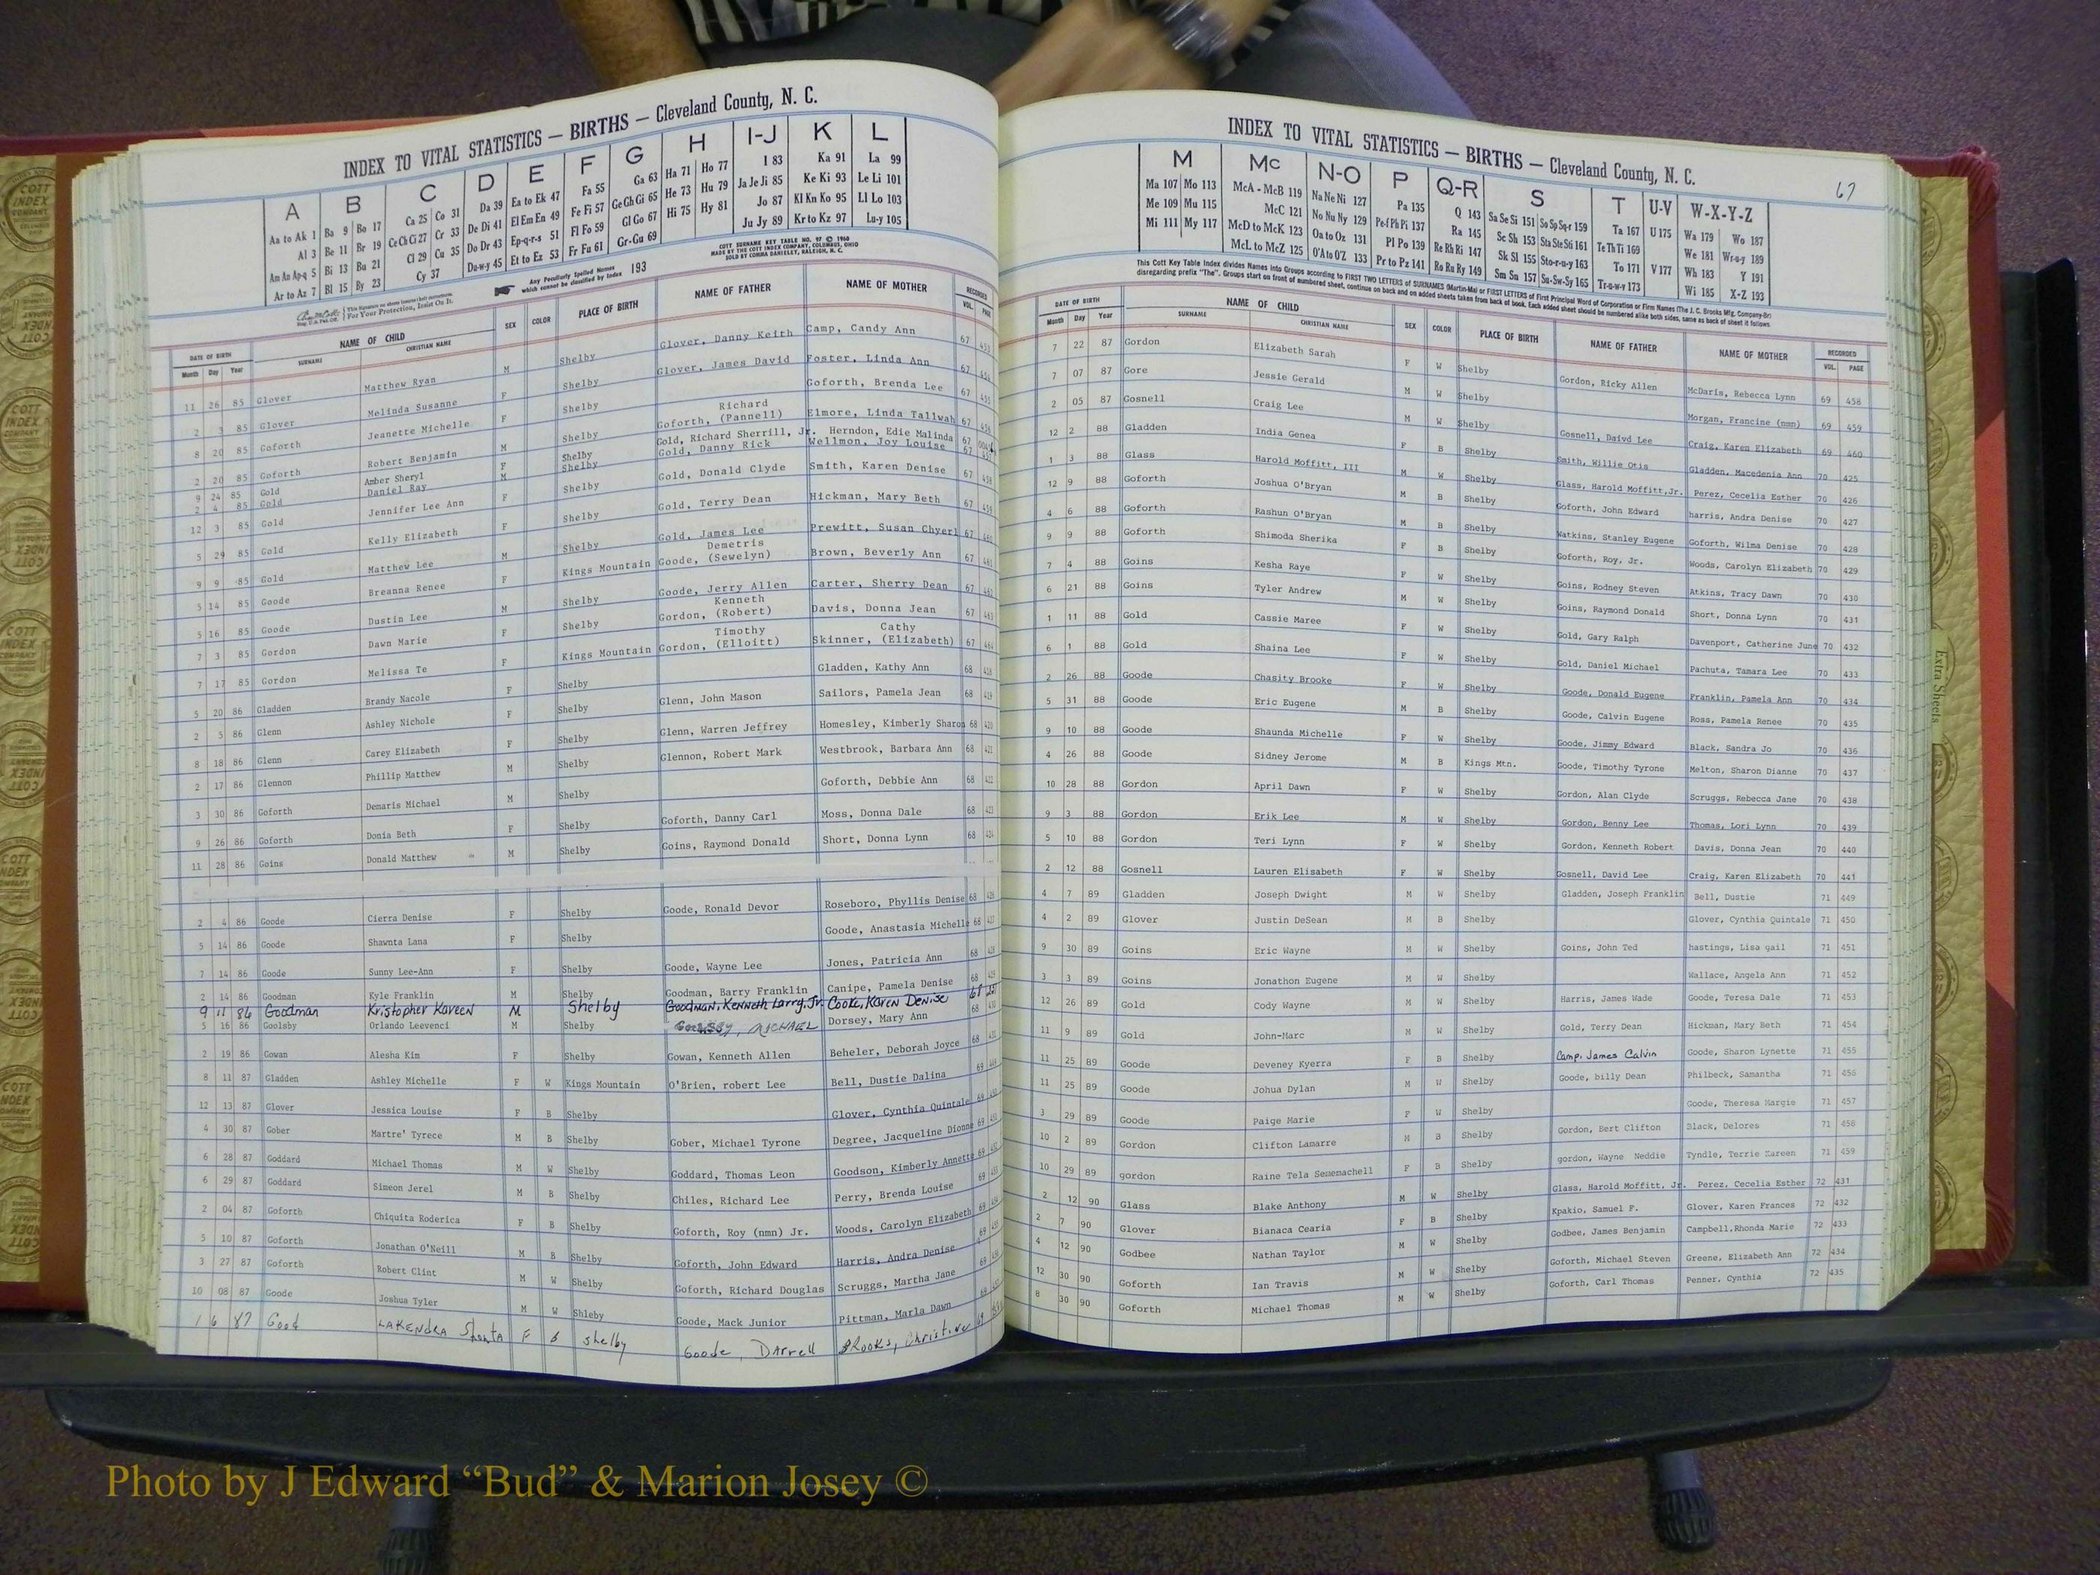 INDEX TO VITAL STATISTICS — BIRTHS — Cleveland County, N. C.
A B C D E F G H I-J K L
Aa to Ak 1 Ba 9 Bo 17 Ca 25 Co 31 Da 39 Ea to Ek 47 Fa 55 Ga 63 Ha 71 Ho 77 I 83 Ka 91 La 99
Al 3 Be 11 Br 19 Ce Ch Ci 27 Cr 33 De Di 41 El Em En 49 Fe Fi 57 Ge Gh Gi 65 He 73 Hu 79 Ja Je Ji 85 Ke Ki 93 Le Li 101
Am An Ap-q 5 Bi 13 Bu 21 Cl 29 Cu 35 Do Dr 43 Ep-q-r-s 51 Fl Fo 59 Gl Go 67 Hi 75 Hy 81 Jo 87 Kl Kn Ko 95 Ll Lo 103
Ar to Az 7 Bl 15 By 23 Cy 37 Du-w-y 45 Et to Ez 53 Fr Fu 61 Gr-Gu 69 Ju Jy 89 Kr to Kz 97 Lu-y 105
For Your Protection, Insist On It.
Any Peculiarly Spelled Names which cannot be classified by Index 193
COTT SURNAME KEY TABLE NO. 97 © 1960
MADE BY THE COTT INDEX COMPANY, COLUMBUS, OHIO
SOLD BY COMMA DANIELEY, RALEIGH, N. C.
DATE OF BIRTH NAME OF CHILD SEX COLOR PLACE OF BIRTH NAME OF FATHER NAME OF MOTHER RECORDED
Month Day Year SURNAME CHRISTIAN NAME VOL. PAGE
11 26 85 Glover Matthew Ryan M Shelby Glover, Danny Keith Camp, Candy Ann 67 453
2 3 85 Glover Melinda Susanne F Shelby Glover, James David Foster, Linda Ann 67 454
8 20 85 Goforth Jeanette Michelle F Shelby Goforth, Brenda Lee 67 455
2 20 85 Goforth Robert Benjamin M Shelby Goforth, Richard (Pannell) Elmore, Linda Tallwah 67 456
9 24 85 Gold Amber Sheryl F Shelby Gold, Richard Sherrill, Jr. Herndon, Edie Malinda 67
2 4 85 Gold Daniel Ray M Shelby Gold, Danny Rick Wellmon, Joy Louise 67 457
12 3 85 Gold Jennifer Lee Ann F Shelby Gold, Donald Clyde Smith, Karen Denise 67 458
5 29 85 Gold Kelly Elizabeth F Shelby Gold, Terry Dean Hickman, Mary Beth 67 459
9 9 85 Gold Matthew Lee M Shelby Gold, James Lee Prewitt, Susan Chyerl 67 460
5 14 85 Goode Breanna Renee F Kings Mountain Goode, Demetris (Sewelyn) Brown, Beverly Ann 67 461
5 16 85 Goode Dustin Lee M Shelby Goode, Jerry Allen Carter, Sherry Dean 67 462
7 3 85 Gordon Dawn Marie F Shelby Gordon, Kenneth (Robert) Davis, Donna Jean 67 463
7 17 85 Gordon Melissa Te F Kings Mountain Gordon, Timothy (Elloitt) Skinner, Cathy (Elizabeth) 67 464
5 20 86 Gladden Brandy Nacole F Shelby Gladden, Kathy Ann 68 418
2 5 86 Glenn Ashley Nichole F Shelby Glenn, John Mason Sailors, Pamela Jean 68 419
8 18 86 Glenn Carey Elizabeth F Shelby Glenn, Warren Jeffrey Homesley, Kimberly Sharon 68 420
2 17 86 Glennon Phillip Matthew M Shelby Glennon, Robert Mark Westbrook, Barbara Ann 68 421
3 30 86 Goforth Demaris Michael M Shelby Goforth, Debbie Ann 68 422
9 26 86 Goforth Donia Beth F Shelby Goforth, Danny Carl Moss, Donna Dale 68 423
11 28 86 Goins Donald Matthew M Shelby Goins, Raymond Donald Short, Donna Lynn 68 424
2 4 86 Goode Cierra Denise F Shelby Goode, Ronald Devor Roseboro, Phyllis Denise 68 426
5 14 86 Goode Shawnta Lana F Shelby Goode, Anastasia Michelle 68 427
7 14 86 Goode Sunny Lee-Ann F Shelby Goode, Wayne Lee Jones, Patricia Ann 68 428
2 14 86 Goodman Kyle Franklin M Shelby Goodman, Barry Franklin Canipe, Pamela Denise 68 429
9 11 86 Goodman Kristopher Kaveen M Shelby Goodman, Kenneth Larry, Jr. Cooke, Karen Denise 68
5 16 86 Goolsby Orlando Leevenci M Shelby Goolsby, Michael Dorsey, Mary Ann 68 430
2 19 86 Gowan Alesha Kim F Shelby Gowan, Kenneth Allen Beheler, Deborah Joyce 68 431
8 11 87 Gladden Ashley Michelle F W Kings Mountain O'Brien, robert Lee Bell, Dustie Dalina 69
12 13 87 Glover Jessica Louise F B Shelby Glover, Cynthia Quintale 69
4 30 87 Gober Martre' Tyrece M B Shelby Gober, Michael Tyrone Degree, Jacqueline Dionne 69
6 28 87 Goddard Michael Thomas M W Shelby Goddard, Thomas Leon Goodson, Kimberly Annette 69
6 29 87 Goddard Simeon Jerel M B Shelby Chiles, Richard Lee Perry, Brenda Louise 69
2 04 87 Goforth Chiquita Roderica F B Shelby Goforth, Roy (nmn) Jr. Woods, Carolyn Elizabeth 69
5 10 87 Goforth Jonathan O'Neill M B Shelby Goforth, John Edward Harris, Andra Denise 69
3 27 87 Goforth Robert Clint M W Shelby Goforth, Richard Douglas Scruggs, Martha Jane 69
10 08 87 Goode Joshua Tyler M W Shleby Goode, Mack Junior Pittman, Marla Dawn 69
1 6 87 Good Lakendra Shanta F B Shelby Goode, Darrell Brooks, Christine 69
INDEX TO VITAL STATISTICS — BIRTHS — Cleveland County, N. C.
67
M Mc N-O P Q-R S T U-V W-X-Y-Z
Ma 107 Mo 113 McA - McB 119 Na Ne Ni 127 Pa 135 Q 143 Sa Se Si 151 So Sp Sq-r 159 Ta 167 U 175 Wa 179 Wo 187
Me 109 Mu 115 McC 121 No Nu Ny 129 Pe-f Ph Pi 137 Ra 145 Sc Sh 153 Sta Ste Sti 161 Te Th Ti 169 We 181 Wr-u-y 189
Mi 111 My 117 McD to McK 123 Oa to Oz 131 Pl Po 139 Re Rh Ri 147 Sk Sl 155 Sto-r-u-y 163 To 171 V 177 Wh 183 Y 191
McL to McZ 125 O'A to O'Z 133 Pr to Pz 141 Ro Ru Ry 149 Sm Sn 157 Su-Sw-Sy 165 Tr-u-w-y 173 Wi 185 X-Z 193
This Cott Key Table Index divides Names into Groups according to FIRST TWO LETTERS of SURNAMES (Martin-Ma) or FIRST LETTERS of First Principal Word of Corporation or Firm Names (The J. C. Brooks Mfg. Company-Br)
disregarding prefix "The". Groups start on front of numbered sheet, continue on back and on added sheets taken from back of book. Each added sheet should be numbered alike both sides, same as back of sheet it follows
DATE OF BIRTH NAME OF CHILD SEX COLOR PLACE OF BIRTH NAME OF FATHER NAME OF MOTHER RECORDED
Month Day Year SURNAME CHRISTIAN NAME VOL. PAGE
7 22 87 Gordon Elizabeth Sarah F W Shelby Gordon, Ricky Allen McDaris, Rebecca Lynn 69 458
7 07 87 Gore Jessie Gerald M W Shelby Morgan, Francine (nmn) 69 459
2 05 87 Gosnell Craig Lee M W Shelby Gosnell, Daivd Lee Craig, Karen Elizabeth 69 460
12 2 88 Gladden India Genea F B Shelby Smith, Willie Otis Gladden, Macedenia Ann 70 425
1 3 88 Glass Harold Moffitt, III M W Shelby Glass, Harold Moffitt,Jr. Perez, Cecelia Esther 70 426
12 9 88 Goforth Joshua O'Bryan M B Shelby Goforth, John Edward harris, Andra Denise 70 427
4 6 88 Goforth Rashun O'Bryan M B Shelby Watkins, Stanley Eugene Goforth, Wilma Denise 70 428
9 9 88 Goforth Shimoda Sherika F B Shelby Goforth, Roy, Jr. Woods, Carolyn Elizabeth 70 429
7 4 88 Goins Kesha Raye F W Shelby Goins, Rodney Steven Atkins, Tracy Dawn 70 430
6 21 88 Goins Tyler Andrew M W Shelby Goins, Raymond Donald Short, Donna Lynn 70 431
1 11 88 Gold Cassie Maree F W Shelby Gold, Gary Ralph Davenport, Catherine June 70 432
6 1 88 Gold Shaina Lee F W Shelby Gold, Daniel Michael Pachuta, Tamara Lee 70 433
2 26 88 Goode Chasity Brooke F W Shelby Goode, Donald Eugene Franklin, Pamela Ann 70 434
5 31 88 Goode Eric Eugene M B Shelby Goode, Calvin Eugene Ross, Pamela Renee 70 435
9 10 88 Goode Shaunda Michelle F W Shelby Goode, Jimmy Edward Black, Sandra Jo 70 436
4 26 88 Goode Sidney Jerome M B Kings Mtn. Goode, Timothy Tyrone Melton, Sharon Dianne 70 437
10 28 88 Gordon April Dawn F W Shelby Gordon, Alan Clyde Scruggs, Rebecca Jane 70 438
9 3 88 Gordon Erik Lee M W Shelby Gordon, Benny Lee Thomas, Lori Lynn 70 439
5 10 88 Gordon Teri Lynn F W Shelby Gordon, Kenneth Robert Davis, Donna Jean 70 440
2 12 88 Gosnell Lauren Elisabeth F W Shelby Gosnell, David Lee Craig, Karen Elizabeth 70 441
4 7 89 Gladden Joseph Dwight M W Shelby Gladden, Joseph Franklin Bell, Dustie 71 449
4 2 89 Glover Justin DeSean M B Shelby Glover, Cynthia Quintale 71 450
9 30 89 Goins Eric Wayne M W Shelby Goins, John Ted hastings, Lisa gail 71 451
3 3 89 Goins Jonathon Eugene M W Shelby Wallace, Angela Ann 71 452
12 26 89 Gold Cody Wayne M W Shelby Harris, James Wade Goode, Teresa Dale 71 453
11 9 89 Gold John-Marc M W Shelby Gold, Terry Dean Hickman, Mary Beth 71 454
11 25 89 Goode Deveney Kyerra F B Shelby Camp, James Calvin Goode, Sharon Lynette 71 455
11 25 89 Goode Johua Dylan M W Shelby Goode, billy Dean Philbeck, Samantha 71 456
3 29 89 Goode Paige Marie F W Shelby Goode, Theresa Margie 71 457
10 2 89 Gordon Clifton Lamarre M B Shelby Gordon, Bert Clifton Black, Delores 71 458
10 29 89 gordon Raine Tela Sememachell F B Shelby gordon, Wayne Neddie Tyndle, Terrie Kareen 71 459
2 12 90 Glass Blake Anthony M W Shelby Glass, Harold Moffitt, Jr. Perez, Cecelia Esther 72 431
2 7 90 Glover Bianaca Cearia F B Shelby Kpakio, Samuel F. Glover, Karen Frances 72 432
4 12 90 Godbee Nathan Taylor M W Shelby Godbee, James Benjamin Campbell,Rhonda Marie 72 433
12 30 90 Goforth Ian Travis M W Shelby Goforth, Michael Steven Greene, Elizabeth Ann 72 434
8 30 90 Goforth Michael Thomas M W Shelby Goforth, Carl Thomas Penner, Cynthia 72 435
Extra Sheets
COTT INDEX COMPANY
Photo by J Edward “Bud” & Marion Josey ©